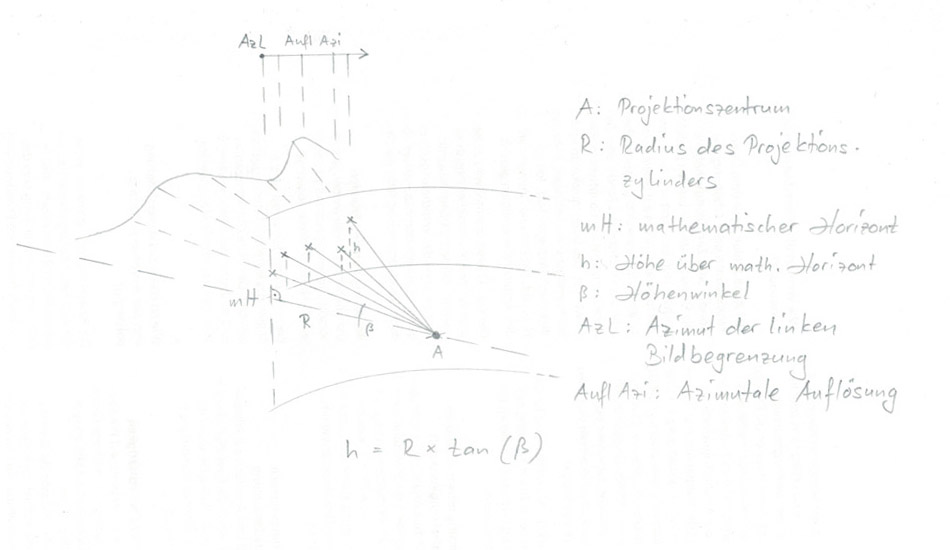 AzL Aufl Azi
A: Projektionszentrum
R: Radius des Projektions-
zylinders
mH: mathematischer Horizont
h
h: Höhe über math. Horizont
mH
β: Höhenwinkel
R
β
AzL: Azimut der linken
A
Bildbegrenzung
Aufl Azi: Azimutale Auflösung
h = R × tan (β)